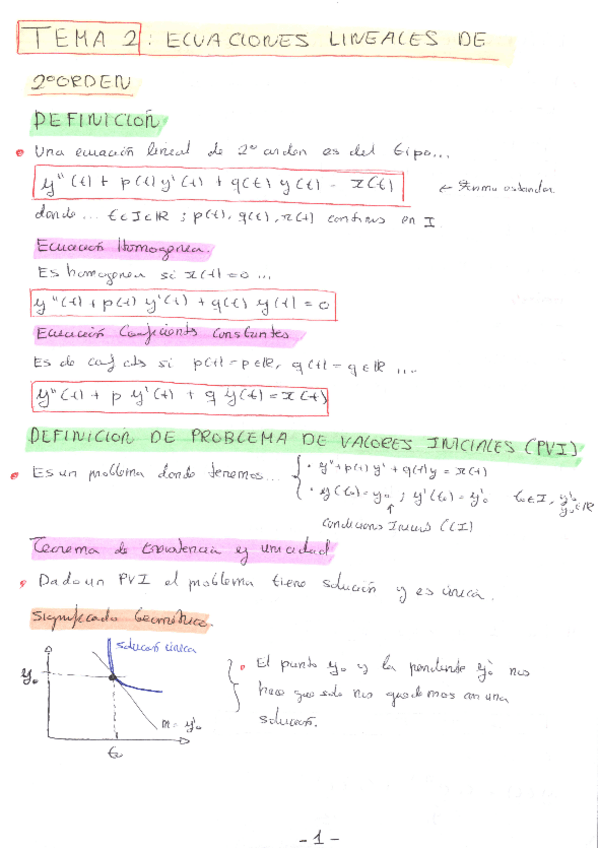 TEMA 2: ECUACIONES LINEALES DE
2º ORDEN
DEFINICIÓN
• Una ecuación lineal de 2º orden es del tipo...
y''(t) + p(t) y'(t) + q(t) y(t) = r(t) ← Forma estandar
donde ... t∈I⊂ℝ ; p(t), q(t), r(t) continuas en I
Ecuación Homogenea.
Es homogenea si r(t)=0 ...
y''(t) + p(t) y'(t) + q(t) y(t) = 0
Ecuación Coeficients Constantes
Es de coef cts si p(t)=p∈ℝ, q(t)=q∈ℝ ...
y''(t) + p y'(t) + q y(t) = r(t)
DEFINICIÓN DE PROBLEMA DE VALORES INICIALES (PVI)
• Es un problema donde tenemos... { • y''+p(t) y' + q(t) y = r(t)
• y(t₀)=y₀ ; y'(t₀)=y'₀ t₀∈I, y'₀ y₀∈ℝ
↑
Condicions Inicials (CI)
Teorema de Existencia y unicidad
• Dado un PVI el problema tiene solución y es única.
Significado Geométrico.
solución única
y₀
m = y'₀
t₀
} • El punto y₀ y la pendiente y'₀ nos
hace que solo nos quedemos con una
solución.
- 1 -